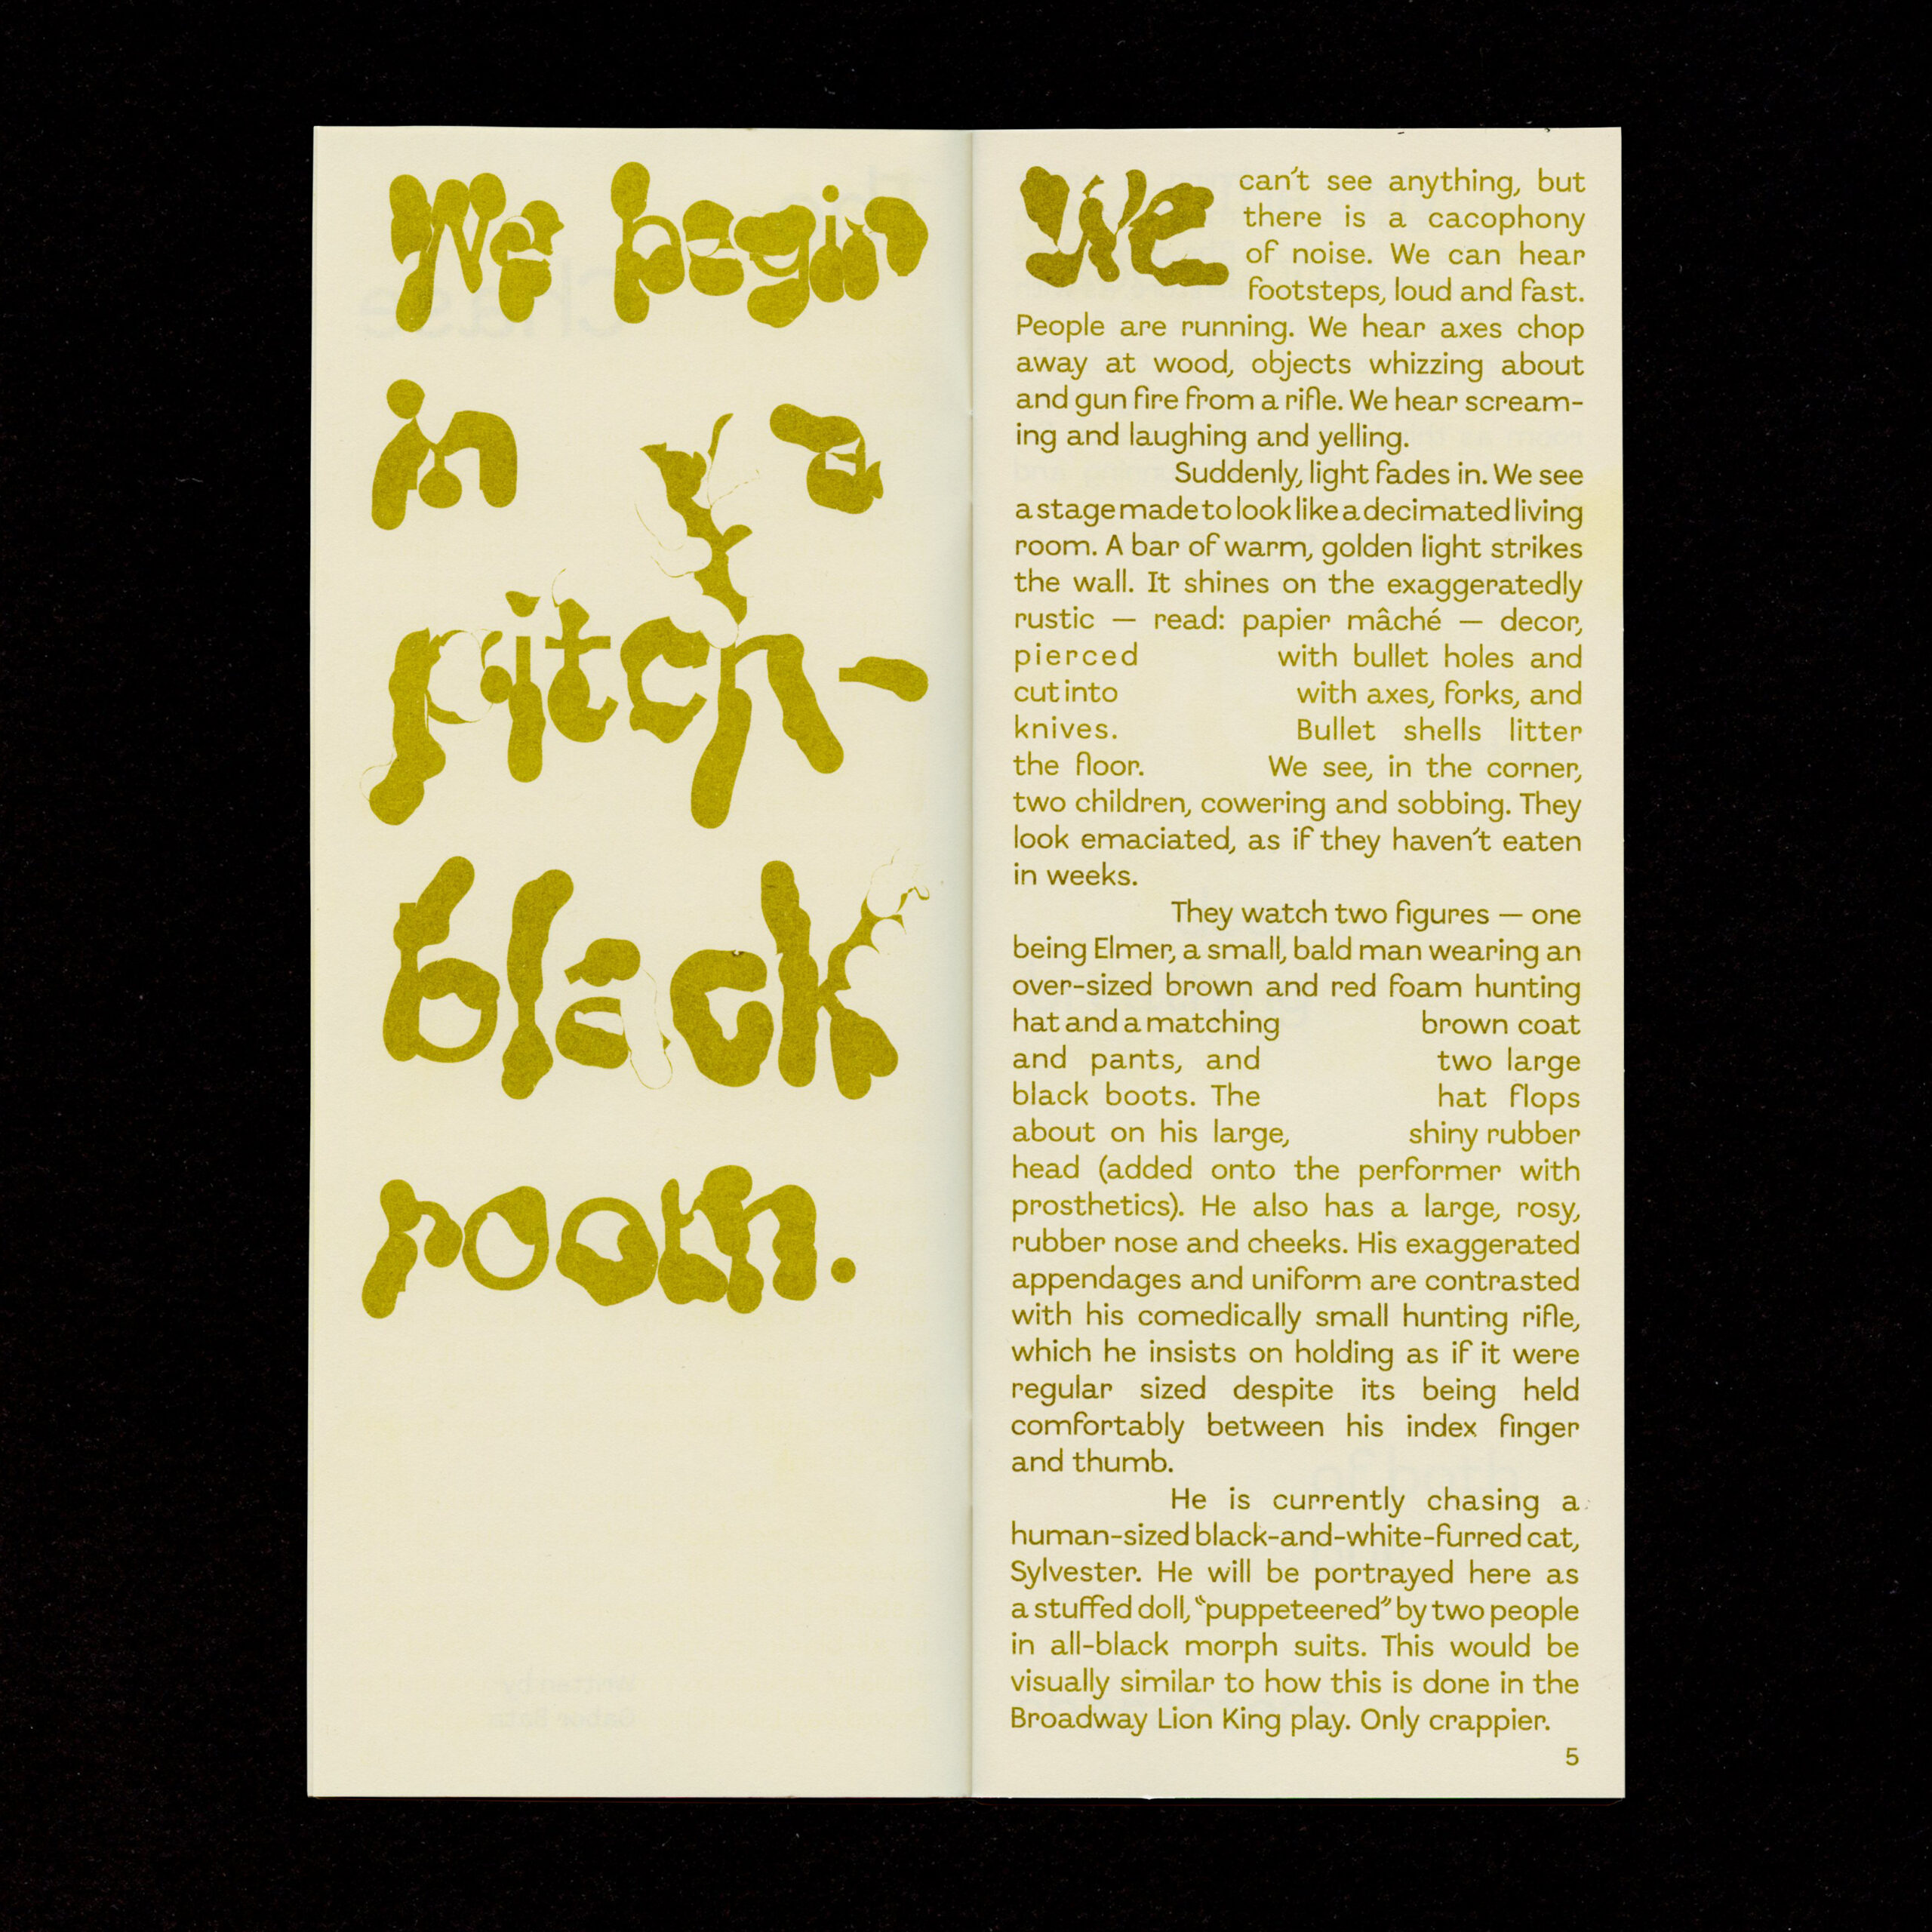 We begin
in a
pitch-
black
room.
We can't see anything, but
there is a cacophony
of noise. We can hear
footsteps, loud and fast.
People are running. We hear axes chop
away at wood, objects whizzing about
and gun fire from a rifle. We hear scream-
ing and laughing and yelling.
Suddenly, light fades in. We see
a stage made to look like a decimated living
room. A bar of warm, golden light strikes
the wall. It shines on the exaggeratedly
rustic — read: papier mâché — decor,
pierced with bullet holes and
cut into with axes, forks, and
knives. Bullet shells litter
the floor. We see, in the corner,
two children, cowering and sobbing. They
look emaciated, as if they haven't eaten
in weeks.
They watch two figures — one
being Elmer, a small, bald man wearing an
over-sized brown and red foam hunting
hat and a matching brown coat
and pants, and two large
black boots. The hat flops
about on his large, shiny rubber
head (added onto the performer with
prosthetics). He also has a large, rosy,
rubber nose and cheeks. His exaggerated
appendages and uniform are contrasted
with his comedically small hunting rifle,
which he insists on holding as if it were
regular sized despite its being held
comfortably between his index finger
and thumb.
He is currently chasing a
human-sized black-and-white-furred cat,
Sylvester. He will be portrayed here as
a stuffed doll, “puppeteered” by two people
in all-black morph suits. This would be
visually similar to how this is done in the
Broadway Lion King play. Only crappier.
5